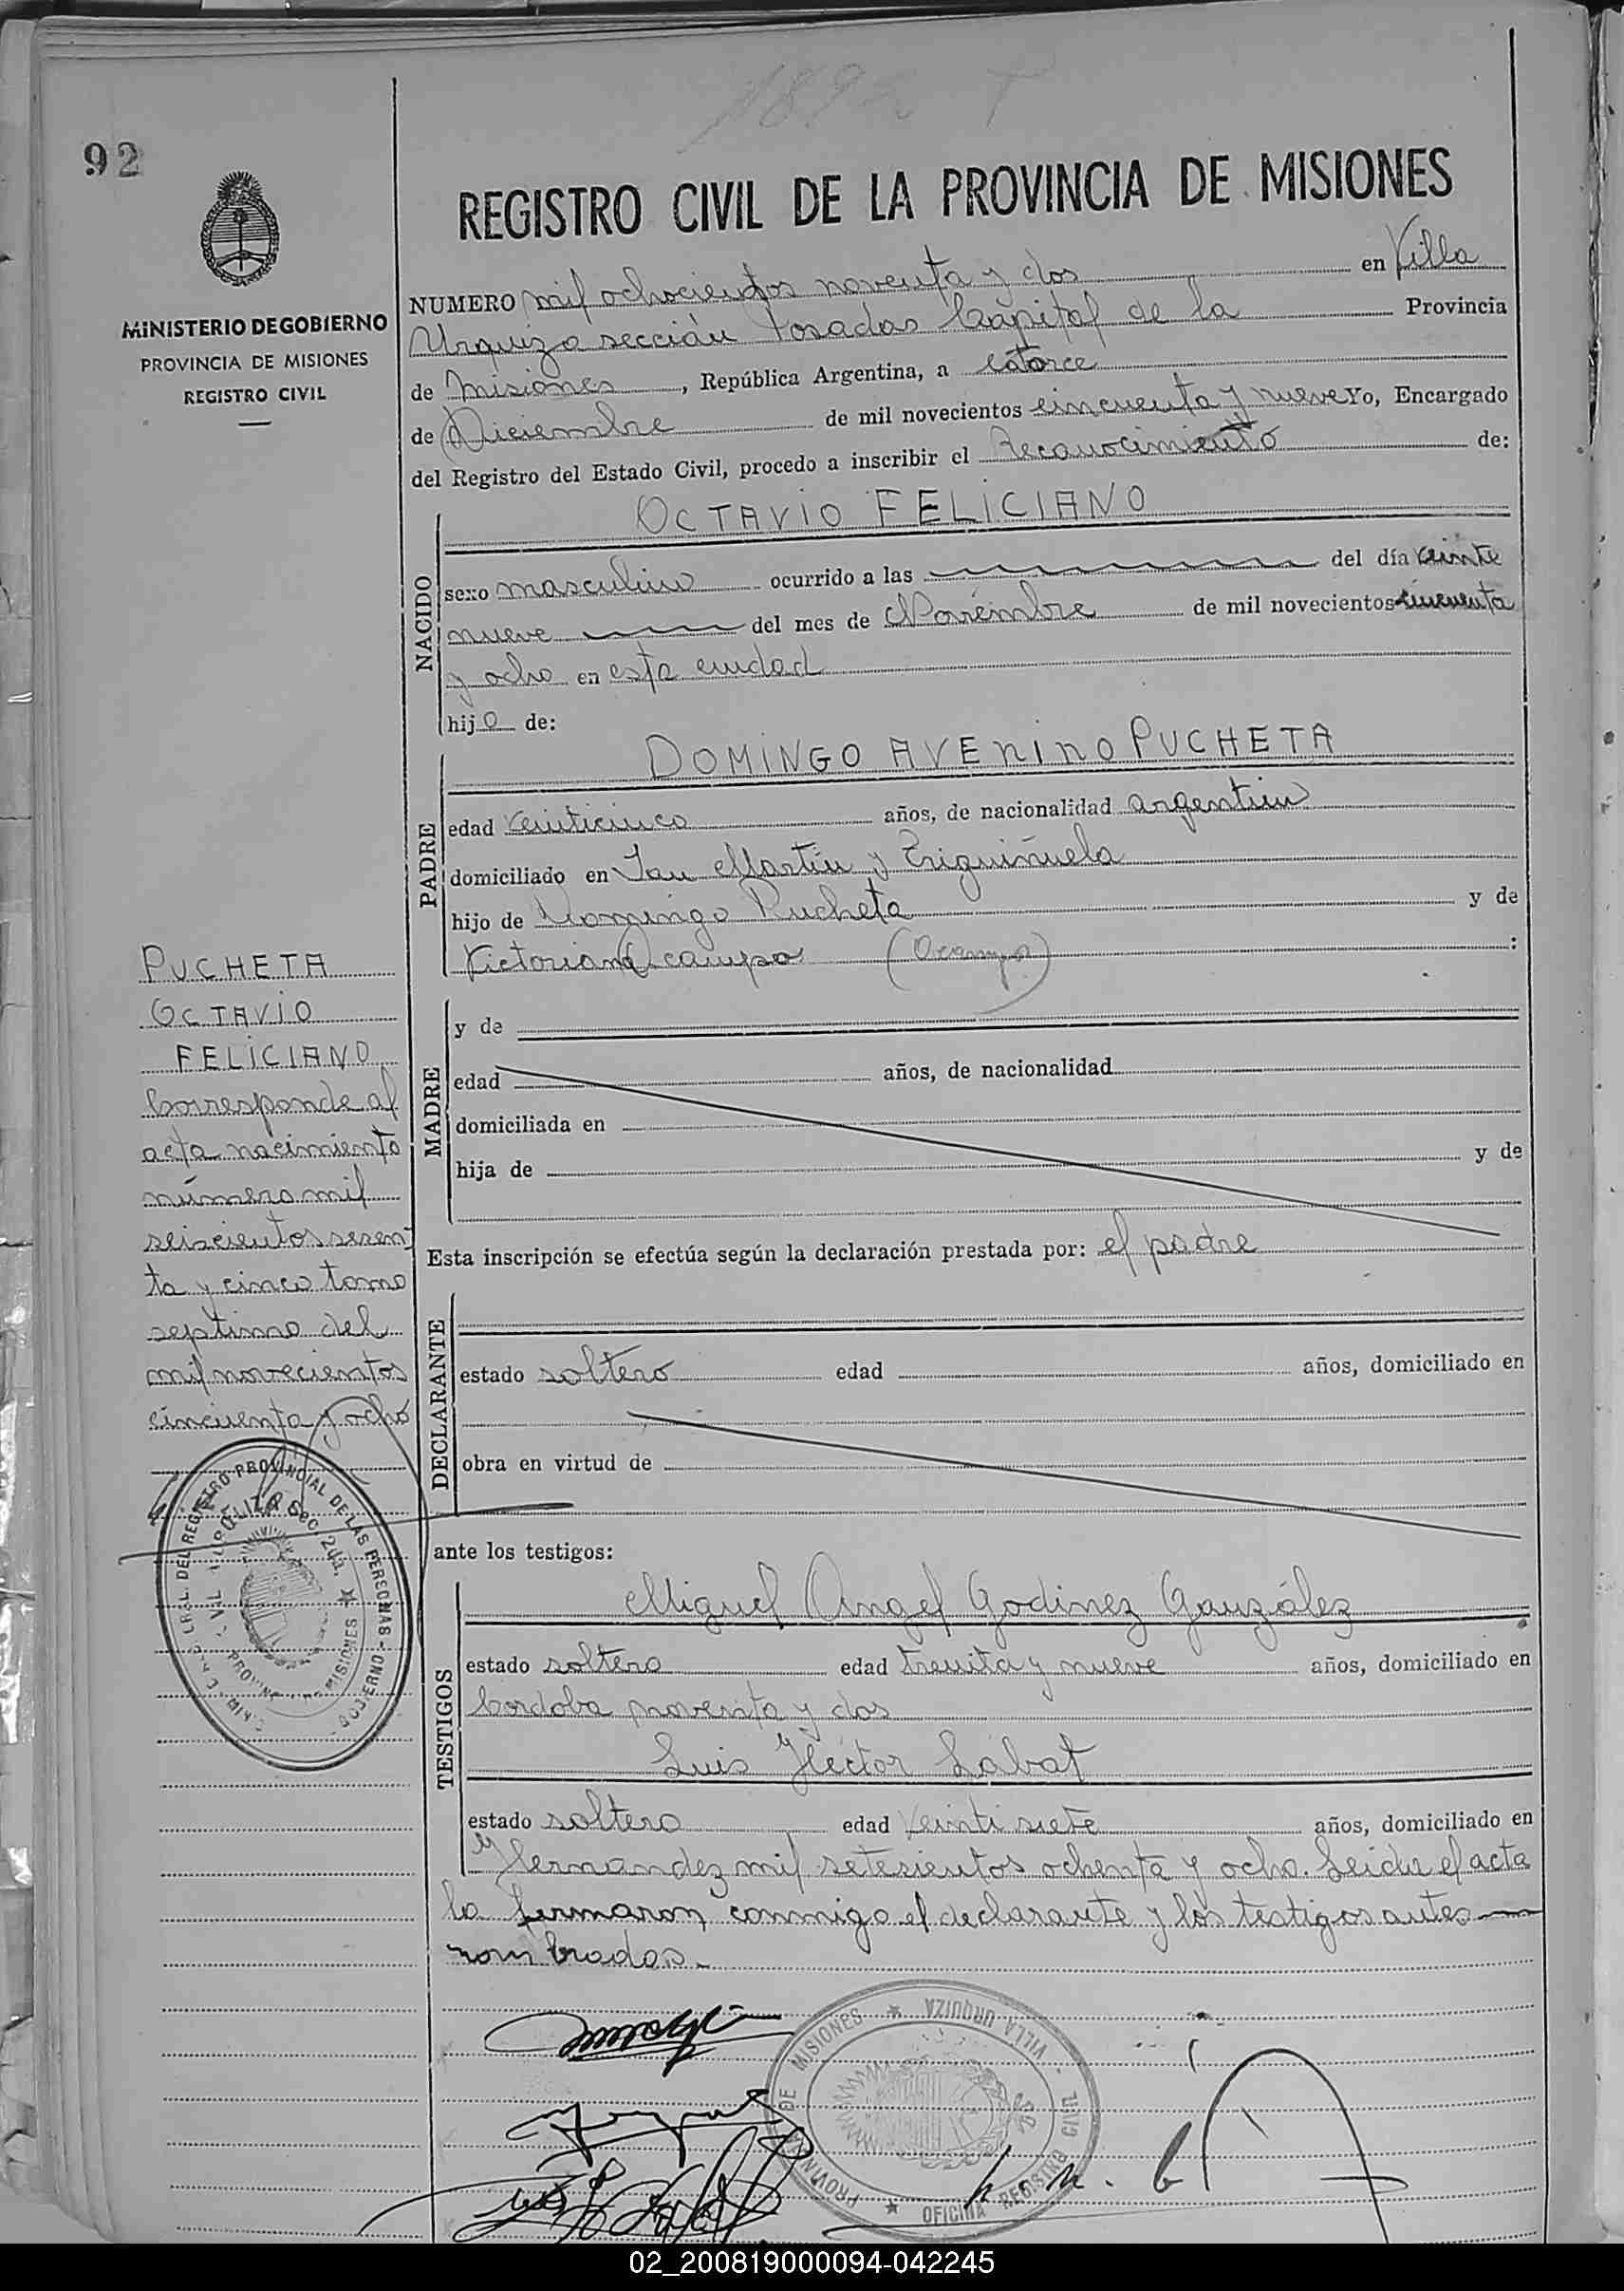 1892
92
REGISTRO CIVIL DE LA PROVINCIA DE MISIONES
MINISTERIO DE GOBIERNO
PROVINCIA DE MISIONES
REGISTRO CIVIL
NUMERO mil ochocientos noventa y dos en Villa
Urquiza sección Posadas Capital de la Provincia
de Misiones, República Argentina, a catorce
de Diciembre de mil novecientos cincuenta y nueve Yo, Encargado
del Registro del Estado Civil, procedo a inscribir el Reconocimiento de:
NACIDO
OCTAVIO FELICIANO
sexo masculino ocurrido a las del día veinte
nueve del mes de Noviembre de mil novecientos cincuenta
y ocho en esta ciudad
hijo de:
PADRE
DOMINGO AVENINO PUCHETA
edad veinticinco años, de nacionalidad argentino
domiciliado en San Martín y Trigüiñuela
hijo de Domingo Pucheta y de
Victoriana Ocampo (Ocampo) :
MADRE
y de
edad años, de nacionalidad
domiciliada en
hija de y de
Esta inscripción se efectúa según la declaración prestada por: el padre
DECLARANTE
estado soltero edad años, domiciliado en
obra en virtud de
ante los testigos:
TESTIGOS
Miguel Angel Godinez González
estado soltero edad treinta y nueve años, domiciliado en
Cordoba noventa y dos
Luis Héctor Labat
estado soltero edad veinti siete años, domiciliado en
Hernandez mil setesientos ochenta y ocho. Leida el acta
la firmaron conmigo el declarante y los testigos antes
nombrados.
PUCHETA
OCTAVIO
FELICIANO
Corresponde al
acta nacimiento
número mil
seiscientos sesen
ta y cinco tomo
septimo del
mil novecientos
cincuenta y ocho
GRAL. DEL REGISTRO PROVINCIAL DE LAS PERSONAS - GOBIERNO
MISIONES
PROVINCIA DE MISIONES ★ VILLA URQUIZA
OFICINA REGISTRO CIVIL
02_200819000094-042245